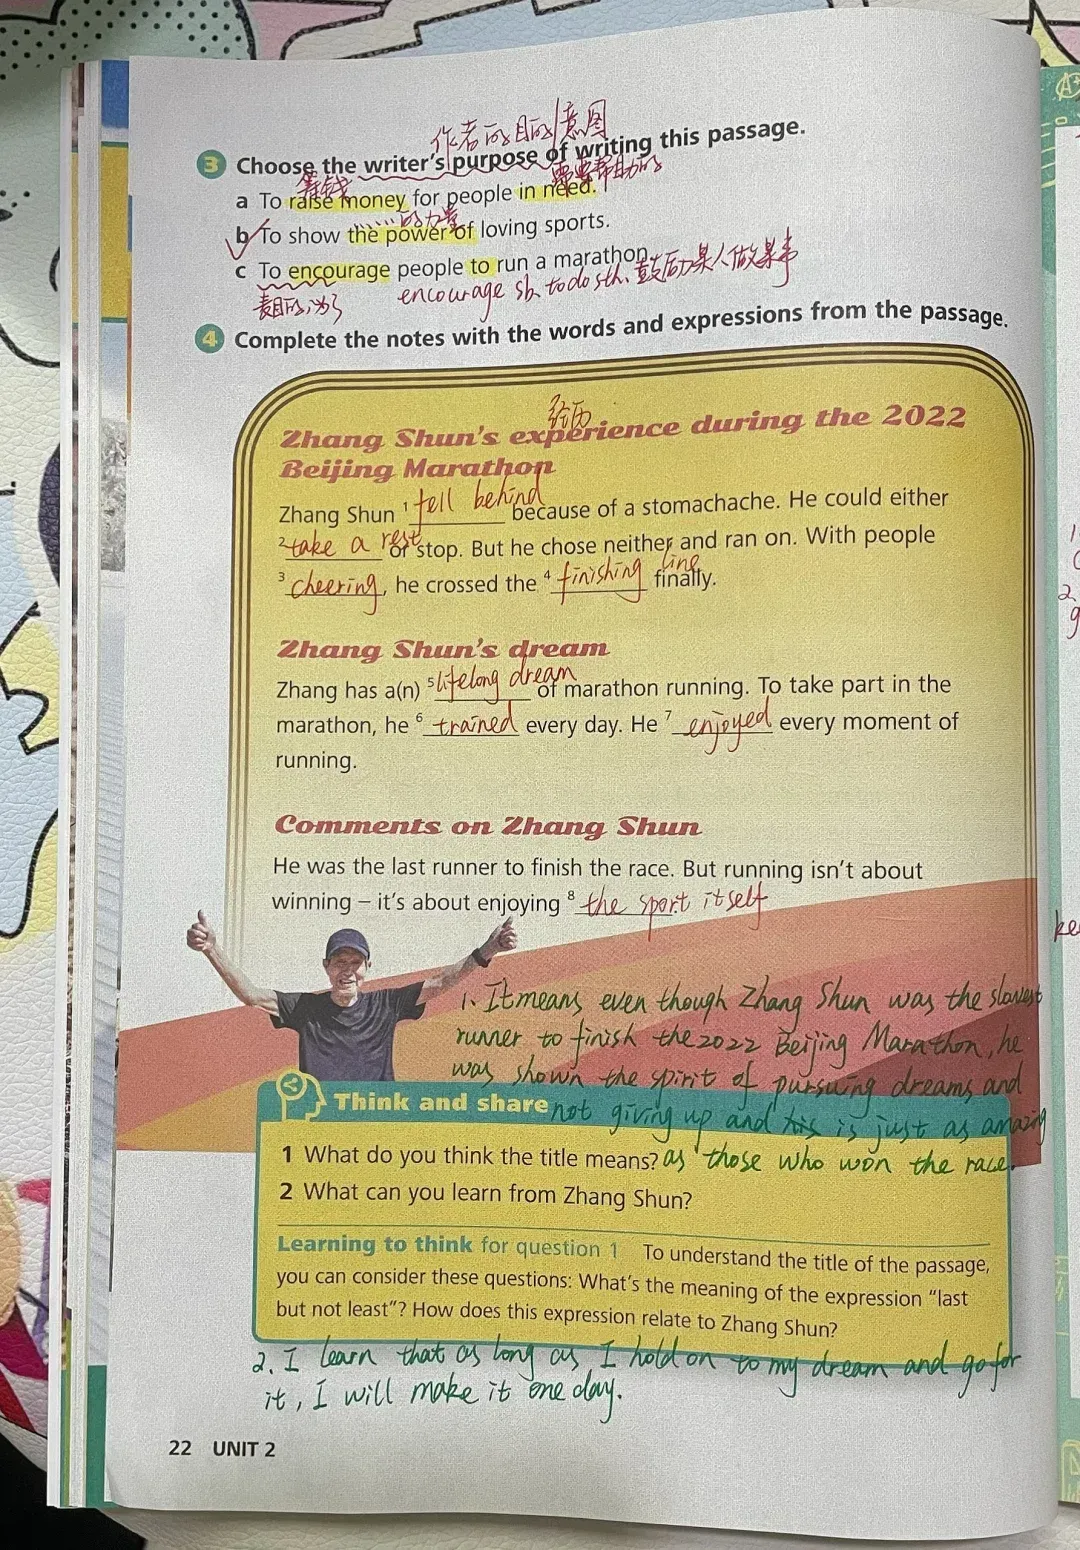 作者的目的/意图
3 Choose the writer's purpose of writing this passage.
筹钱 需要帮助的
a To raise money for people in need.
……的力量
b To show the power of loving sports.
c To encourage people to run a marathon.
表目的,为了 encourage sb. to do sth. 鼓励某人做某事
4 Complete the notes with the words and expressions from the passage.
经历
Zhang Shun's experience during the 2022
Beijing Marathon
Zhang Shun 1 fell behind because of a stomachache. He could either
2 take a rest or stop. But he chose neither and ran on. With people
3 cheering, he crossed the 4 finishing line finally.
Zhang Shun's dream
Zhang has a(n) 5 lifelong dream of marathon running. To take part in the
marathon, he 6 trained every day. He 7 enjoyed every moment of
running.
Comments on Zhang Shun
He was the last runner to finish the race. But running isn't about
winning – it's about enjoying 8 the sport itself
1. It means even though Zhang Shun was the slowest
runner to finish the 2022 Beijing Marathon, he
was shown the spirit of pursuing dreams and
Think and share
not giving up and his is just as amazing
1 What do you think the title means?
as those who won the race.
2 What can you learn from Zhang Shun?
Learning to think for question 1 To understand the title of the passage,
you can consider these questions: What's the meaning of the expression "last
but not least"? How does this expression relate to Zhang Shun?
2. I learn that as long as I hold on to my dream and go for
it, I will make it one day.
22 UNIT 2
A+